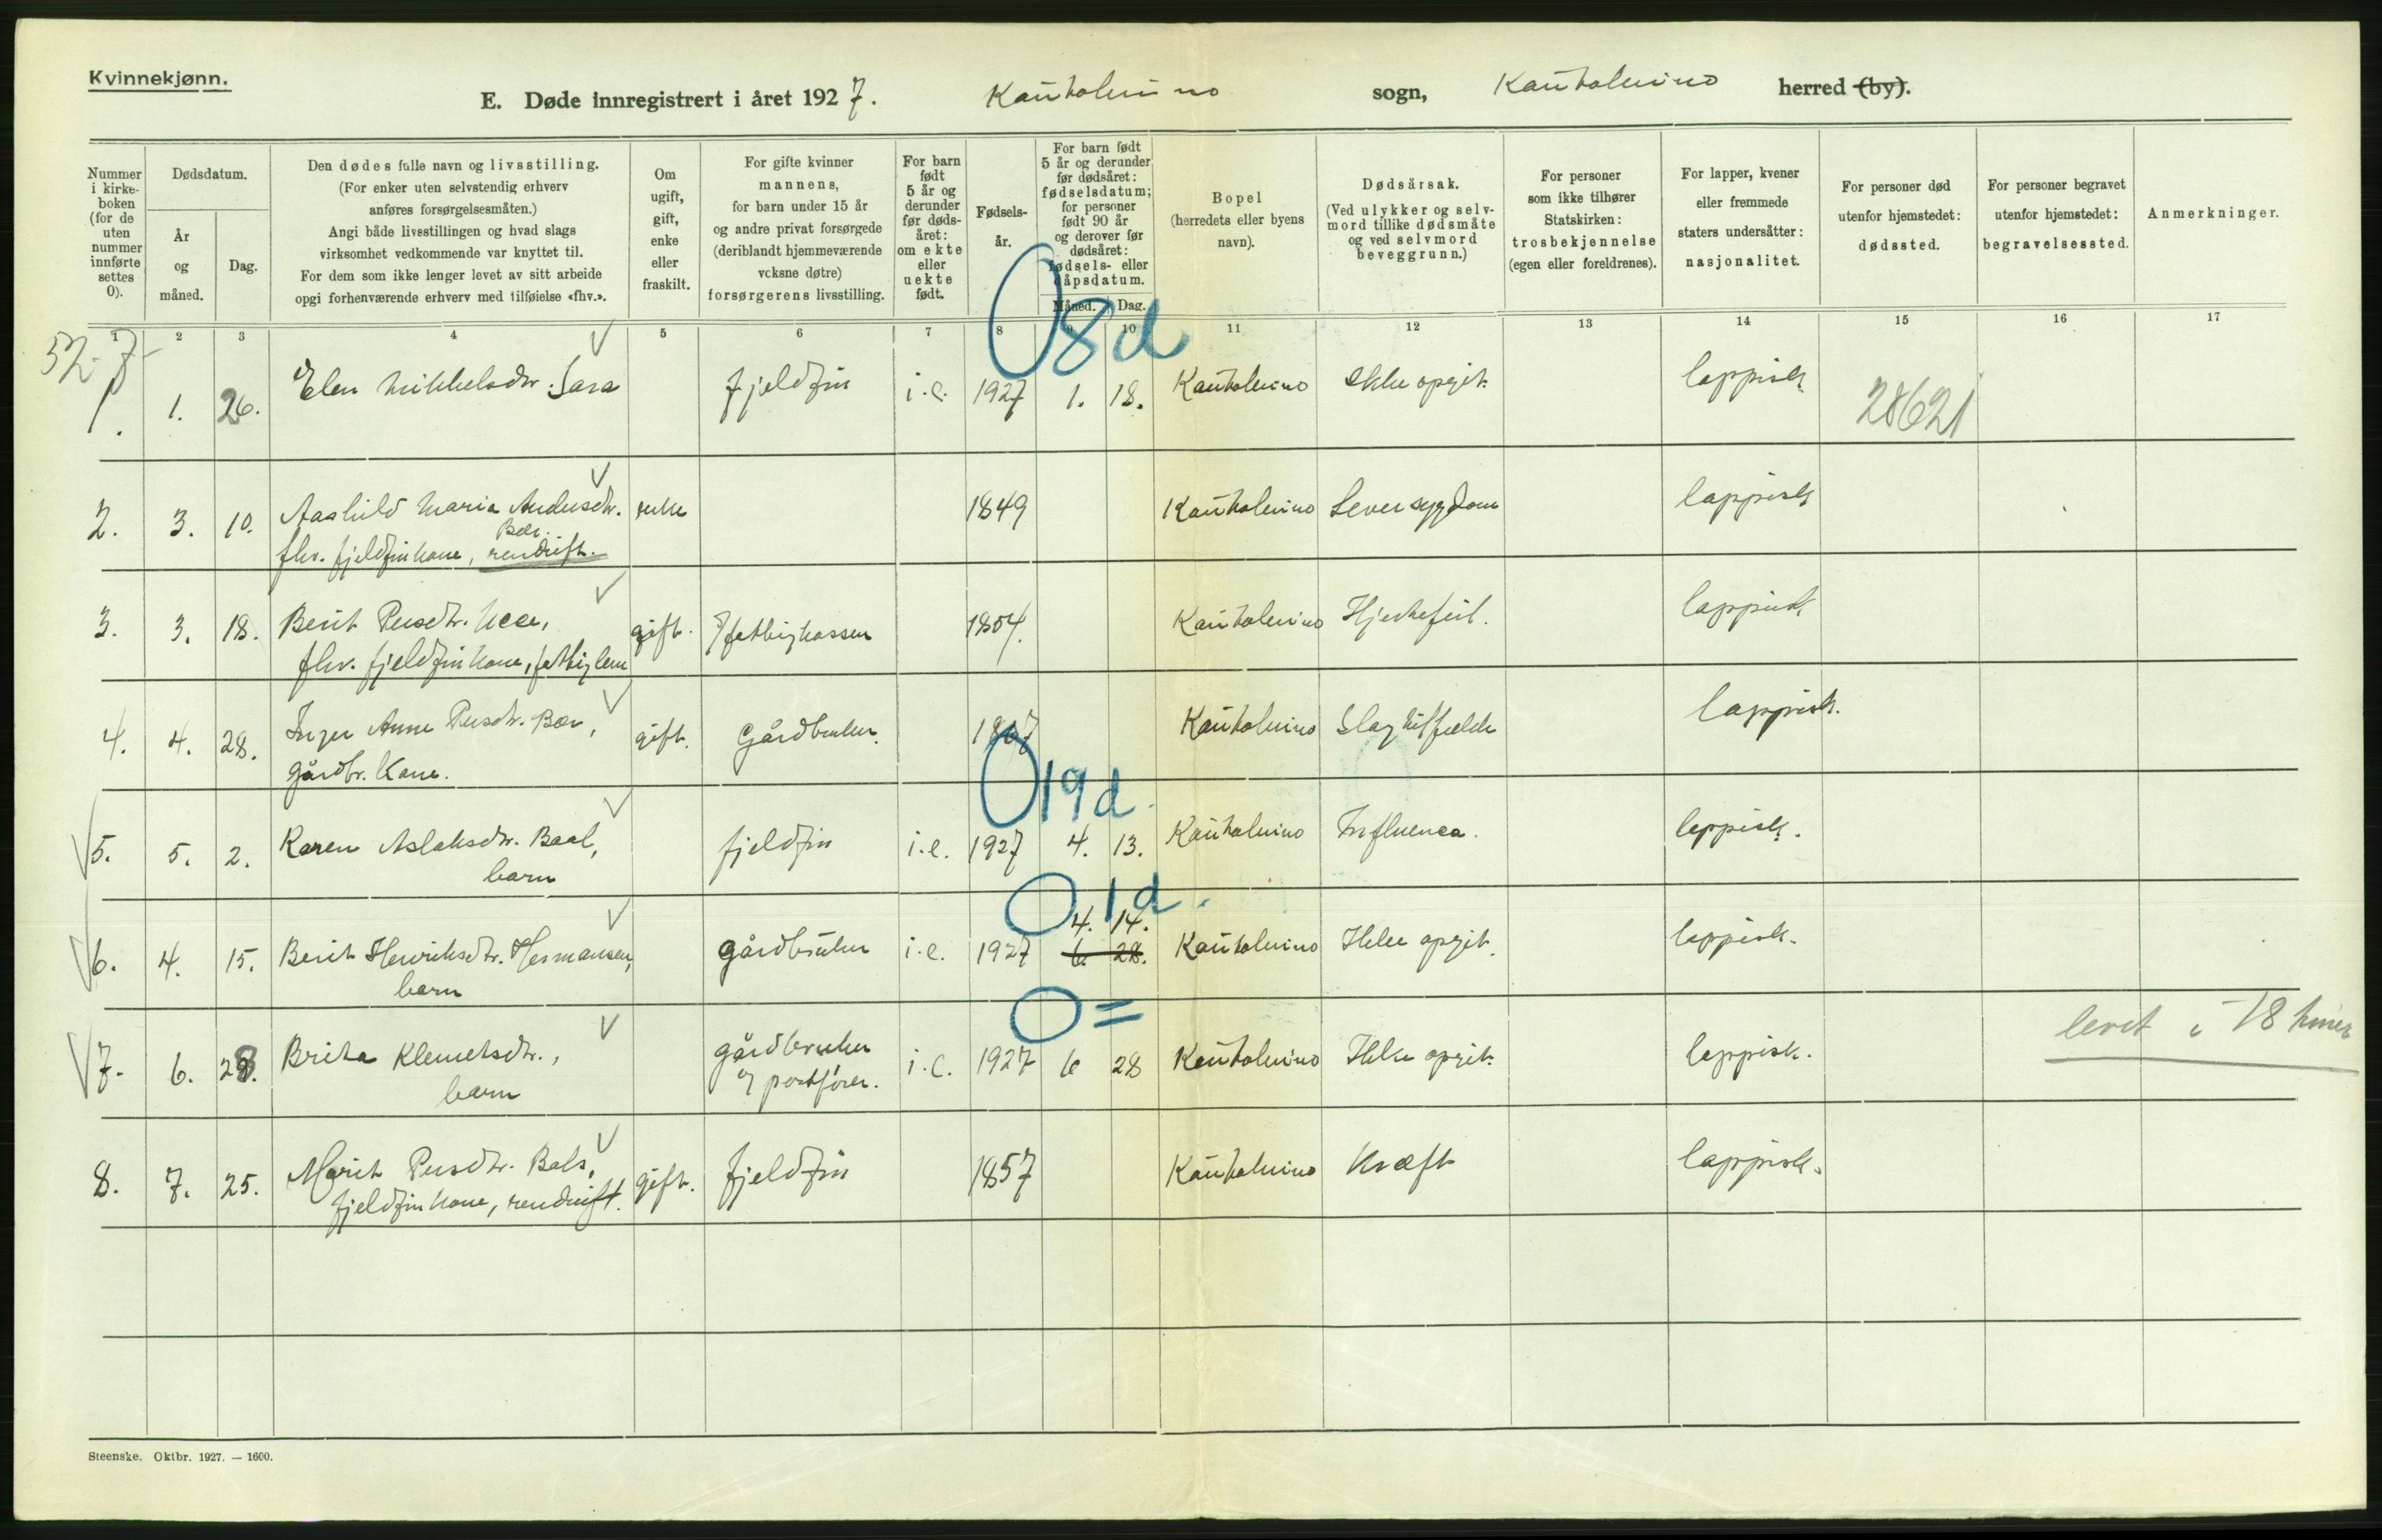 Kvinnekjønn.
E. Døde innregistrert i året 1927. Kautokeino sogn, Kautokeino herred (by).
Nummer i kirke-boken (for de uten nummer innførte settes 0).
Dødsdatum.
År og måned.
Dag.
Den dødes fulle navn og livsstilling.
(For enker uten selvstendig erhverv
anføres forsørgelsesmåten.)
Angi både livsstillingen og hvad slags
virksomhet vedkommende var knyttet til.
For dem som ikke lenger levet av sitt arbeide
opgi forhenværende erhverv med tilføielse «fhv.».
Om ugift, gift, enke eller fraskilt.
For gifte kvinner
mannens,
for barn under 15 år
og andre privat forsørgede
(deriblandt hjemmeværende
voksne døtre)
forsørgerens livsstilling.
For barn født 5 år og derunder før døds-året: om ekte eller uekte født.
Fødsels-år.
For barn født
5 år og derunder
før dødsåret:
fødselsdatum;
for personer
født 90 år
og derover før
dødsåret:
fødsels- eller
dåpsdatum.
Måned. Dag.
Bopel
(herredets eller byens
navn).
Dødsårsak.
(Ved ulykker og selv-
mord tillike dødsmåte
og ved selvmord
beveggrunn.)
For personer
som ikke tilhører
Statskirken:
trosbekjennelse
(egen eller foreldrenes).
For lapper, kvener
eller fremmede
staters undersåtter:
nasjonalitet.
For personer død
utenfor hjemstedet:
dødssted.
For personer begravet
utenfor hjemstedet:
begravelsessted.
Anmerkninger.
1 2 3 4 5 6 7 8 9 10 11 12 13 14 15 16 17
52-7-
0 8 d
1. 1. 26. Elen Mikkelsdtr. Sara fjeldfin i.e. 1927 1. 18. Kautokeino Ikke opgit. lappisk 28621
2. 3. 10. Aashild Maria Andersdtr. enke 1849 Kautokeino Leversygdom lappisk
Bær.
fhv. fjeldfinkone, rendrift.
3. 3. 18. Berit Persdtr. gift. fattigkassen 1854. Kautokeino Hjertefeil. lappisk
fhv. fjeldfinkone, fattiglem
4. 4. 28. Inger Anne Persdtr. Bær, gift. Gårdbruker. 1867 Kautokeino Slagtilfælde lappisk.
gårdbr. kone.
0 19 d.
5. 5. 2. Karen Aslaksdtr. Baal, fjeldfin i.e. 1927 4. 13. Kautokeino Influenca. lappisk.
barn
0 1 d.
4. 14.
6. 4. 15. Berit Henriksdtr. Hermansen, gårdbruker i.e. 1927 6. 28. Kautokeino Ikke opgit. lappisk.
barn
0 =
levet i 18 timer
7. 6. 28. Brita Klemetsdtr., gårdbruker i.e. 1927 6 28 Kautokeino Ikke opgit. lappisk.
barn og postfører.
8. 7. 25. Marit Persdtr. Bals, gift. fjeldfin 1857 Kautokeino Kræft lappisk.
fjeldfinkone, rendrift.
Steenske. Oktbr. 1927. — 1600.